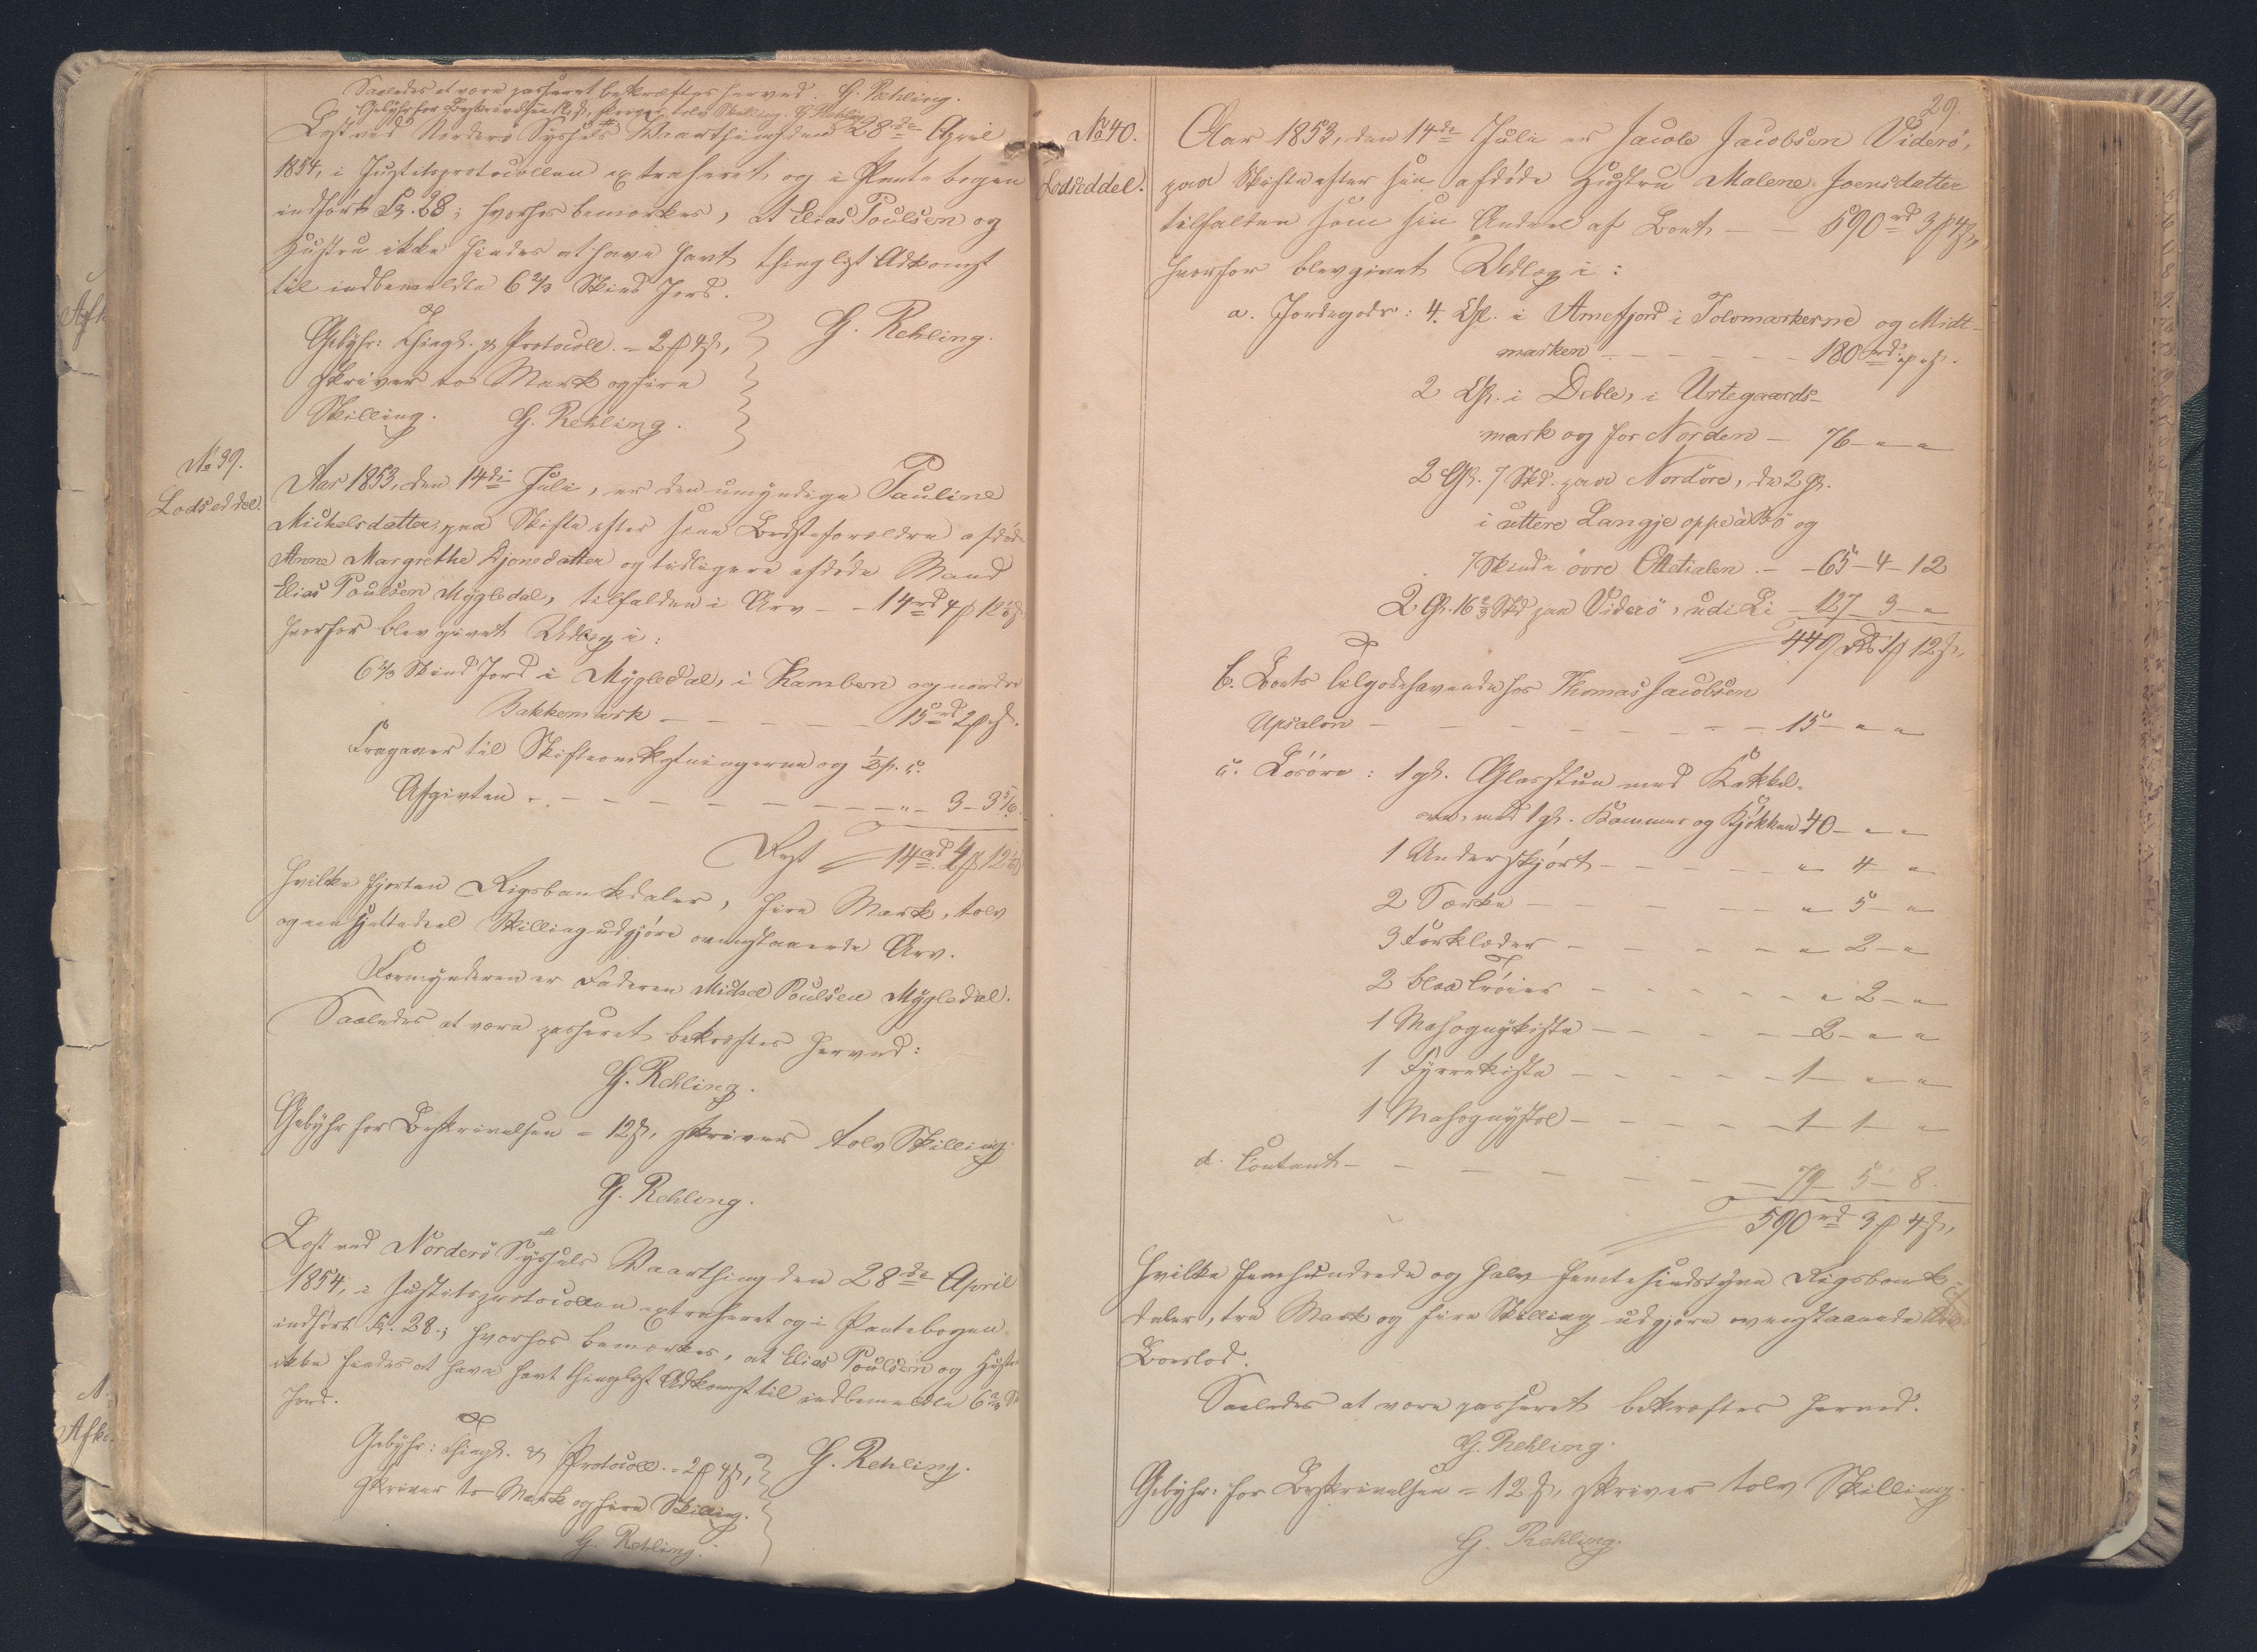 Saaledes at være passeret bekræftes herved. H. Rehling.
Gebyhr for Beskrivelsen 12 ß, skriver tolv Skilling. H. Rehling.
Læst ved Norderø Syssels Vaarthing den 28de April
1854, i Justitsprotocollen extraheret og i Pantebogen
indført Fol. 28; hvorhos bemærkes, at Elias Poulsen og
Hustru ikke findes at have havt thinglyst Adkomst
til indbemeldte 6 2/3 Skind Jord.
Gebyhr: Thingl. & Protocoll. = 2 ƒ 4 ß,
H. Rehling.
skriver to Mark og fire
Skilling. H. Rehling.
No 39.
Lodseddel.
Aar 1853, den 14de Juli, er den umyndige Pauline
Michelsdatter, paa Skifte efter sine Bedsteforældre afdøde
Anne Margrethe Djonedatter og tidligere afdøde Mand
Elias Poulsen Mygledal, tilfalden i Arv - - 14 rd 4 ƒ 12 1/6 ß
hvorfor blev givet Udlæg i:
6 2/3 Skind Jord i Mygledal, i Kambern og nordre
Bakkemark - - - - - 15 rd 2 ƒ " ß.
Fragaaer til Skifteomkostningerne og 1/2 p. c.
Afgivten - - - - - - - - " - 3 - 3 5/6
Rest 14 rd 4 ƒ 12 1/6
hvilke fjorten Rigsbankdaler, fire Mark, tolv
og een sjettedeel Skilling udgjøre ovenstaaende Arv.
Formynderen er Faderen Michel Poulsen Mygledal.
Saaledes at være passeret bekræftes herved:
H. Rehling.
Gebyhr for Beskrivelsen = 12 ß, skriver tolv Skilling.
H. Rehling.
Læst ved Norderø Syssels Vaarthing den 28de April
1854, i Justitsprotocollen extraheret og i Pantebogen
indført Fol. 28.; hvorhos bemærkes, at Elias Poulsen og Hustru
ikke findes at have havt thinglyst Adkomst til indbemeldte 6 2/3 Sk
Jord.
Gebyhr: Thingl. & Protocoll. = 2 ƒ 4 ß,
H. Rehling.
skriver to Mark og fire Skilling.
H. Rehling.
29.
No 40.
Lodseddel.
Aar 1853, den 14de Juli er Jacob Jacobsen Viderö,
paa Skifte efter sin afdøde Hustru Malene Joensdatter
tilfalden som sin Andeel af Boet - - 590 rd 3 ƒ 4 ß,
hvorfor blev givet Udlæg i:
a. Jordegods: 4 Gl. i Arnefjord i Tolvmarkerne og Midt-
marken - - - - - - 180 rd " ƒ " ß.
2 Gl. i Deble, i Urtegaards-
mark og for Norden - 76 - " - "
2 Gl. 7 Skd. paa Nordöre, de 2 Gl.
i uttere Langje oppe à Bö og
7 Skind i övre Ottetialen - - 65 - 4 - 12
2 Gl. 16 2/3 Skd paa Viderö, udi Li - 127 - 3 - "
449 rd 1 ƒ 12 ß,
b. Boets Tilgodehavende hos Thomas Jacobsen
Upsalen - - - - - - - - 15 - " - "
c. Løsöre: 1 gl. Glasstue med Kakkel-
ovn, med 1 gl. Kammer og Kjøkken 40 - " - "
1 Underskjört - - - - - " 4 "
2 Særke - - - - - " 5 - "
3 Forklæder - - - - - " 2 - "
2 blaa Trøier - - - - - " 2 - "
1 Mahognykiste - - - - 2 - " - "
1 Fyrrekiste - - - - - 1 - " - "
1 Mahognystol - - - - 1 - 1 - "
d. Contant - - - - - - - 79 - 5 - 8.
590 rd 3 ƒ 4 ß,
hvilke femhundrede og halv femtesindstyve Rigsbank-
daler, tre Mark og fire Skilling udgjøre ovenstaaende
Boeslod.
Saaledes at være passeret bekræftes herved.
H. Rehling.
Gebyhr: for Beskrivelsen = 12 ß, skriver tolv Skilling.
H. Rehling.